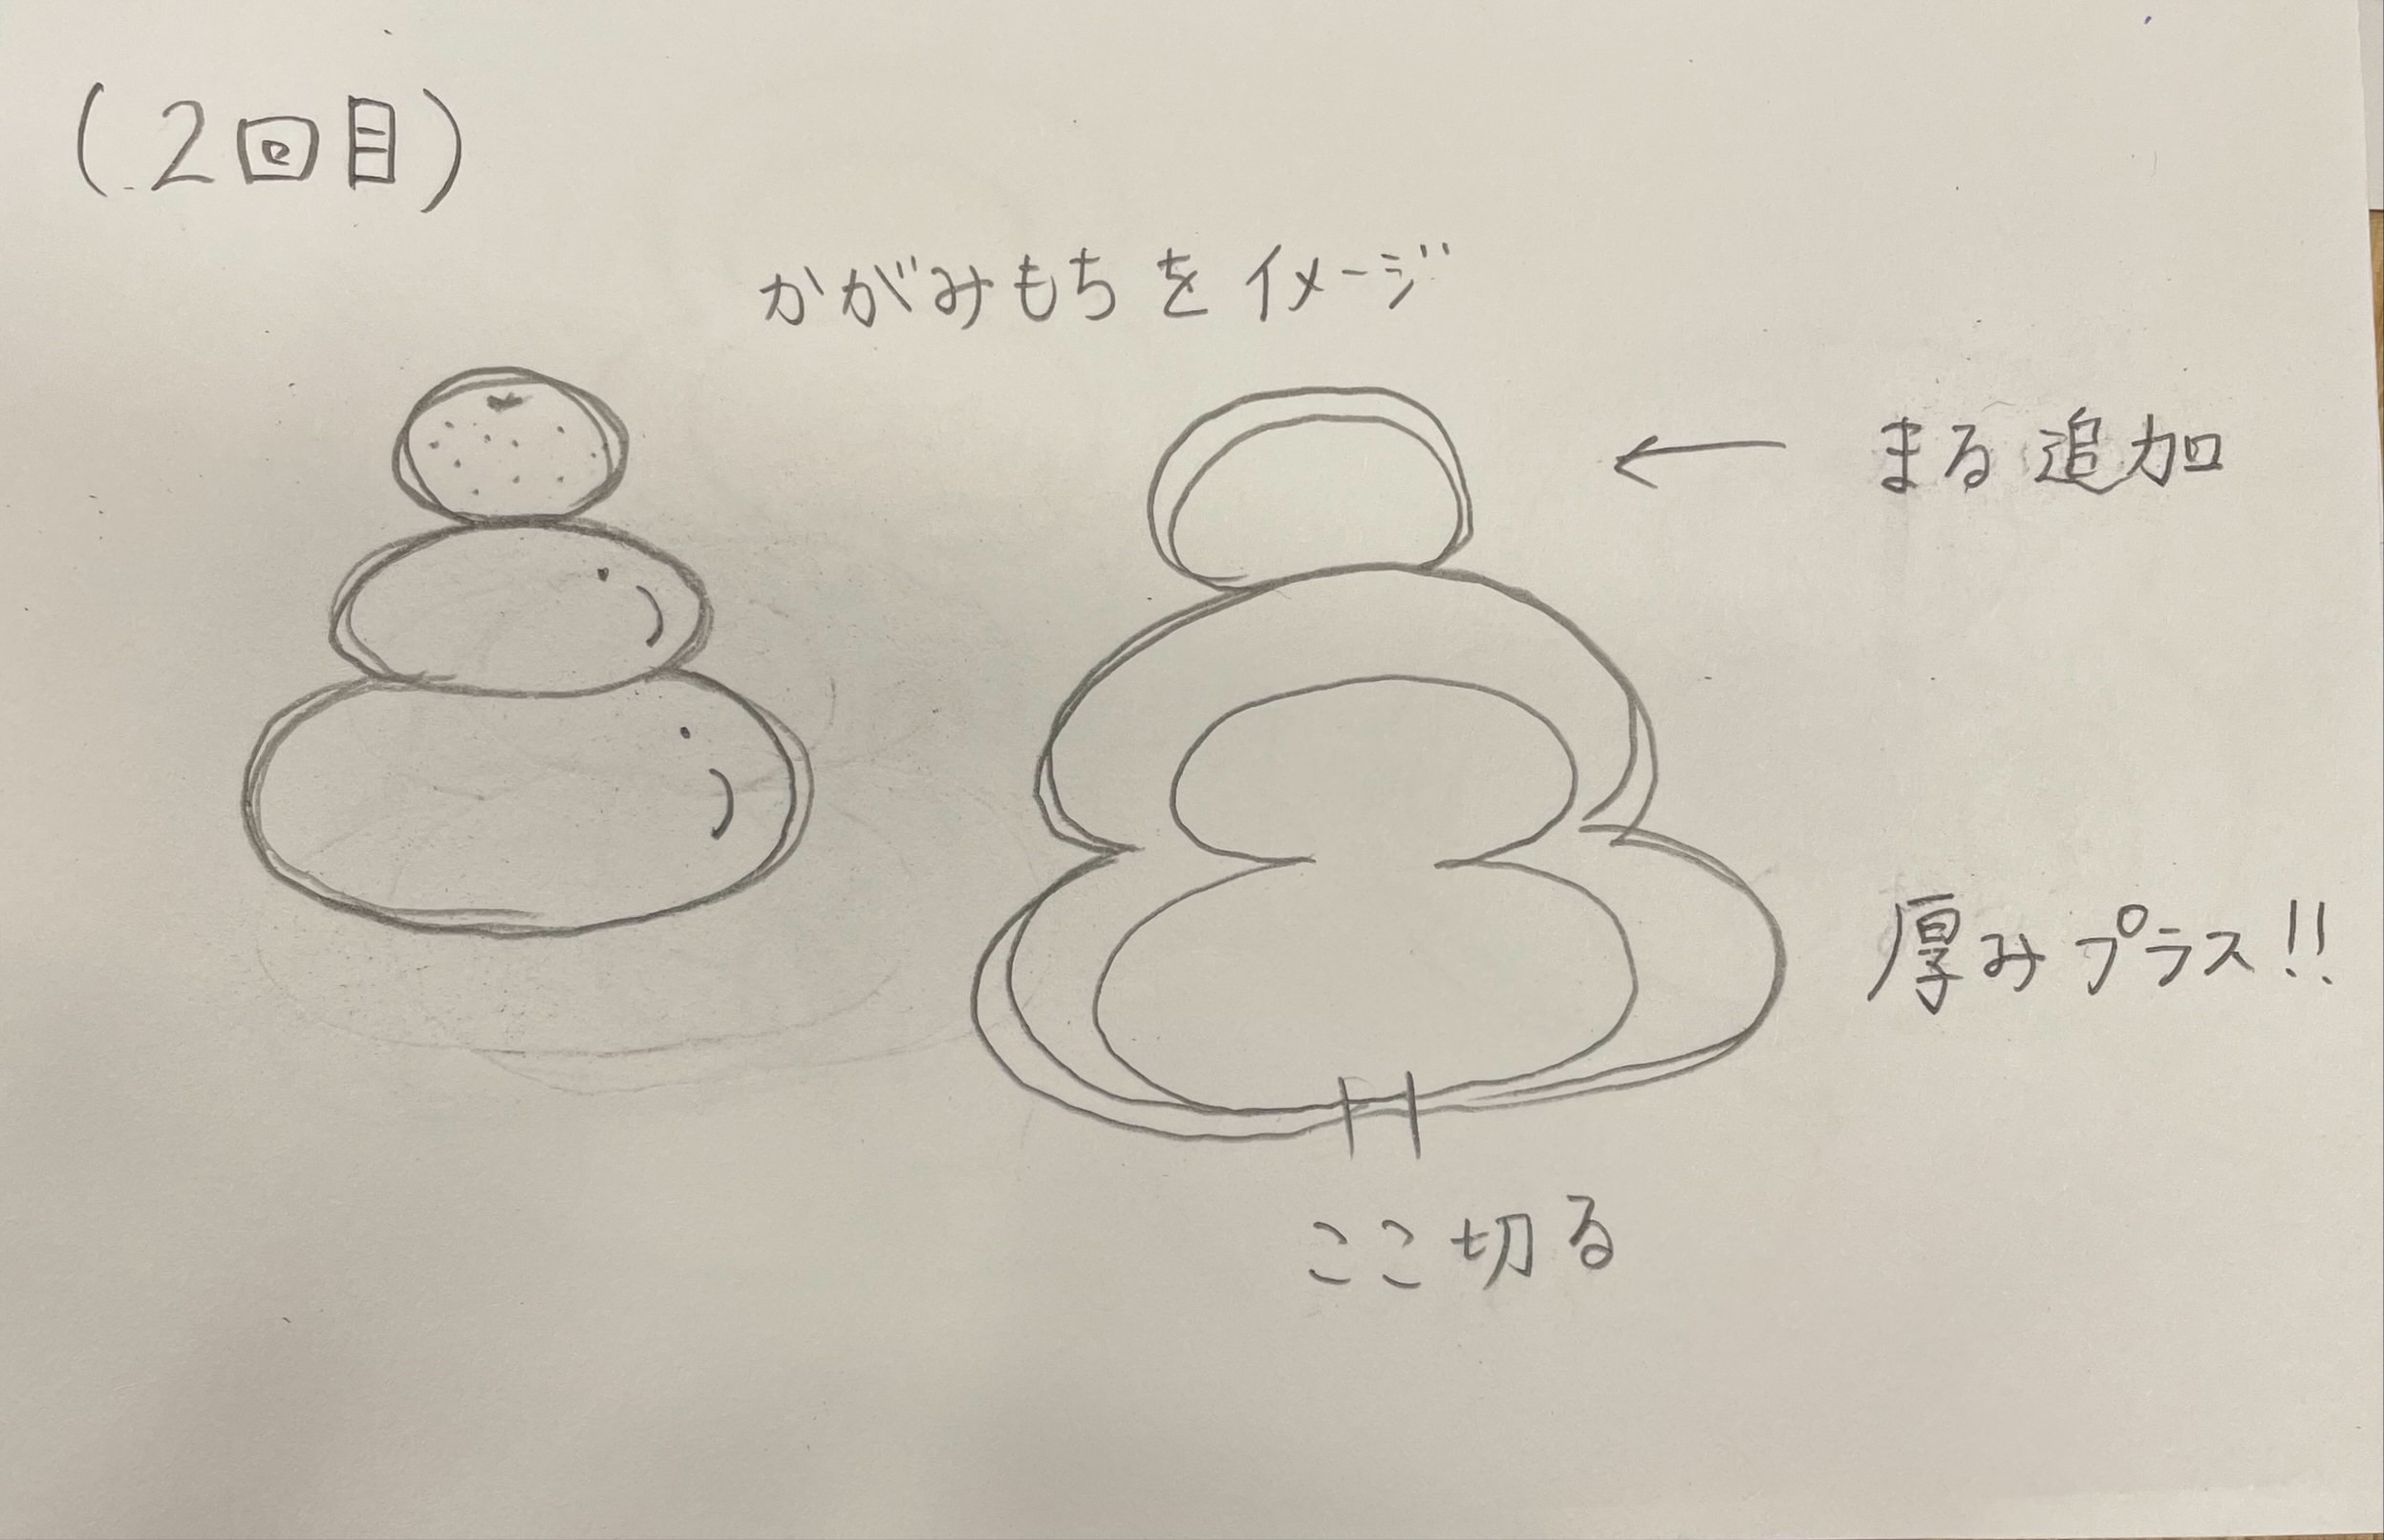 (2回目)
かがみもちをイメージ
← まる追加
厚みプラス!!
ここ切る